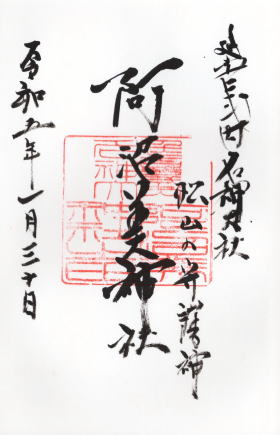 延喜式内名神大社
松山の守護神
阿沼美神社
令和五年一月三十日